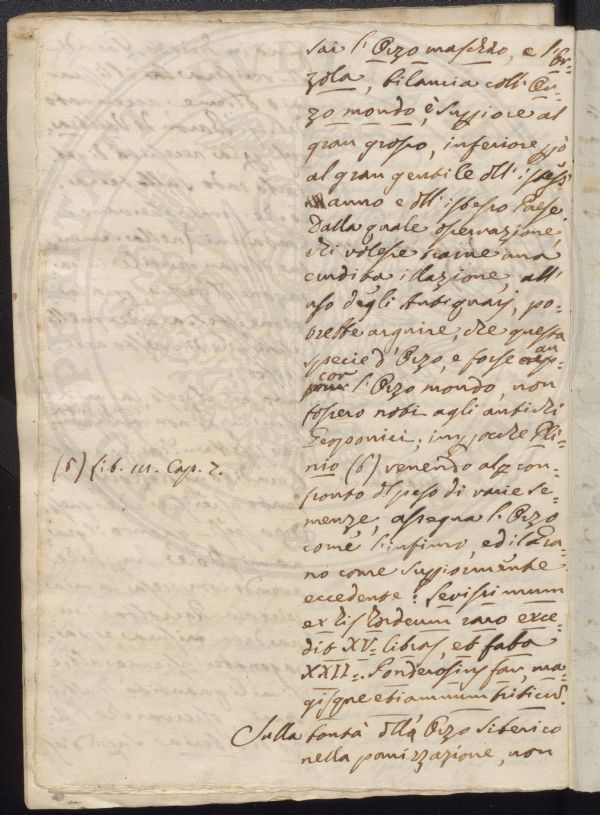 sai l'Orzo maschio, e l'Or=
zola, bilancia coll'Or=
zo mondo, è suppiore al
gran grosso, inferiore ppò
al gran gentile dll'istess'
anno e dll'istesso Paese.
Dalla quale osservazione,
chi volesse trarne una
erudita illazione, all'
uso degli Antiquarj, po=
trebbe arguire, che questa
specie d'Orzo, e forse an
cor l'Orzo mondo, non
fossero noti agli antichi
Geoponici; imprche Pli=
nio (6) venendo al con=
fronto dl peso di varie se=
menze, assegna l'Orzo
come l'infimo, ed il Gra=
no come suppiormente
eccedente: Levissimum
ex his Hordeum raro exce=
dit XV. libras, et faba
XXII. Ponderosius far, ma=
gisque etiamnum triticũ.
Sulla bontà dll'Orzo Siberico
nella panizzazione, non
(6) Lib. III. Cap. 7.